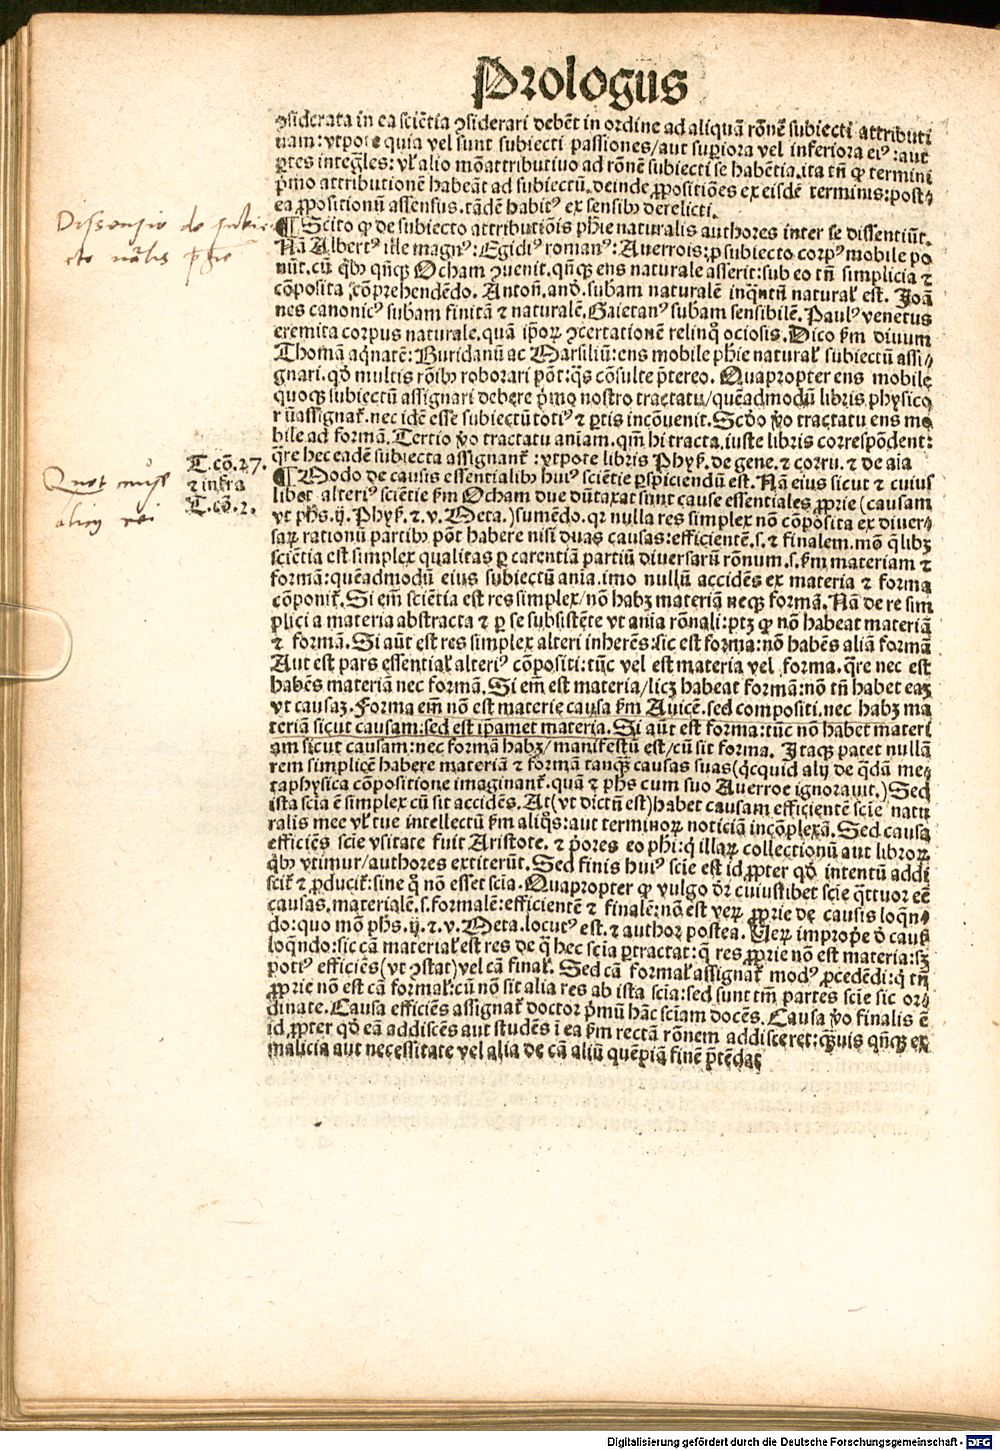 Prologus
ↄsiderata in ea sciẽtia ↄsiderari debẽt in ordine ad aliquã rõnẽ subiecti attributi
uam: vtpote quia vel sunt subiecti passiones/aut sup̱iora vel inferiora eiꝰ: aut
p̱tes integr̃les: vł alio mõ attributiuo ad rõnẽ subiecti se habẽtia. ita tñ ꝙ termini
p̃mo attributionẽ habeãt ad subiectũ. deinde ꝓpositiões ex eisdẽ terminis: post⸗
ea ꝓpositionũ assensus. tãdẽ habitꝰ ex sensibꝫ derelicti.
Dissensio de subie
cto nãlis phie
¶ Scito ꝙ de subiecto attributiõis phie naturalis authores inter se dissentiũt.
Nã Albertꝰ ille magnꝰ: Egidiꝰ romanꝰ: Auerrois: ꝓ subiecto corpꝰ mobile po
nũt. cũ qͥbꝫ qñqꝫ Ocham ↄuenit. qñqꝫ ens naturale asserit: sub eo tñ simplicia ⁊
cõposita cõprehendẽdo. Antoñ. anđ. subam naturalẽ inqͣntũ naturał est. Joã
nes canonicꝰ subam finitã ⁊ naturalẽ. Gaietanꝰ subam sensibilẽ. Paulꝰ venetus
eremita corpus naturale. quã ip̃oꝝ ↄcertationẽ relinqͦ ociosis. Dico ẜm diuum
Thomã aqͥnatẽ: Buridanũ ac Marsiliũ: ens mobile phie naturał subiectũ assi⸗
gnari. qđ multis rõibꝫ roborari põt: qͣs cõsulte p̃tereo. Quapropter ens mobile
quoqꝫ subiectũ assignari debere p̃mo nostro tractatu/quẽadmodũ libris physico
rũ assignat̃. nec idẽ esse subiectũ totiꝰ ⁊ p̱tis incõuenit. Scđo ṽo tractatu ens mo
bile ad formã. Tertio ṽo tractatu aniam. qm̃ hi tracta. iuste libris correspõdent:
qͣre hec eadẽ subiecta assignant̃: vtpote libris Phys̃. de gene. ⁊ corru. ⁊ de aīa
T. cõ. 27.
⁊ infra
T. cõ. 2.
Quot cause
alicuius rei
¶ Modo de causis essentialibꝫ huiꝰ sciẽtie p̱spiciendũ est. Nã eius sicut ⁊ cuius
libet alteriꝰ sciẽtie ẜm Ocham due dũtaxat sunt cause essentiales ꝓprie (causam
vt phs. ij. Phys̃. ⁊. v. Meta.) sumẽdo. qꝛ nulla res simplex nõ cõposita ex diuer⸗
saꝝ rationũ partibꝫ põt habere nisi duas causas: efficientẽ. s. ⁊ finalem. mõ qͥlibꝫ
sciẽtia est simplex qualitas p̱ carentiã partiũ diuersarũ rõnum. s. ẜm materiam ⁊
formã: quẽadmodũ eius subiectũ ania. imo nullũ accidẽs ex materia ⁊ forma
cõponit̃. Si em̃ sciẽtia est res simplex/nõ habꝫ materiã neqꝫ formã. Nã de re sim
plici a materia abstracta ⁊ p̱ se subsistẽte vt anīa rõnali: ptꝫ ꝙ nõ habeat materiã
⁊ formã. Si aũt est res simplex alteri inherẽs: sic est forma: nõ habẽs aliã formã
Aut est pars essentiał alteriꝰ cõpositi: tũc vel est materia vel forma. qͣre nec est
habẽs materiã nec formã. Si em̃ est materia/licꝫ habeat formã: nõ tñ habet eaꝫ
vt causaꝫ. Forma em̃ nõ est materie causa ẜm Auicẽ. sed compositi. nec habꝫ ma
teriã sicut causam: sed est ip̃amet materia. Si aũt est forma: tũc nõ habet materi
am sicut causam: nec formã habꝫ/manifestũ est/cũ sit forma. Itaqꝫ patet nullã
rem simplicẽ habere materiã ⁊ formã tanqꝫ causas suas (qͥcquid alij de qͥdã me⸗
taphysica cõpositione imaginant̃. quã ⁊ phs cum suo Auerroe ignorauit.) Sed
ista scīa ẽ simplex cũ sit accidẽs. At (vt dictũ est) habet causam efficientẽ scīe natu
ralis mee vł tue intellectũ ẜm aliqͦs: aut terminoꝝ noticiã incõplexã. Sed causa
efficiẽs scīe vsitate fuit Aristote. ⁊ p̃ores eo phi: qͥ illaꝝ collectionũ aut libroꝝ
qͥbꝫ vtimur/authores extiterũt. Sed finis huiꝰ scīe est id ꝓpter qđ intentũ addi
scit̃ ⁊ p̱ducit̃: sine qͦ nõ esset scīa. Quapropter ꝙ vulgo dr̃ cuiuslibet scīe qͣttuor eẽ
causas. materialẽ. s. formalẽ: efficientẽ ⁊ finalẽ: nõ est veꝝ ꝓprie de causis loqͣn⸗
do: quo mõ phs. ij. ⁊ v. Meta. locutꝰ est. ⁊ author postea. Veꝝ improp̱e đ causis
loqͣndo: sic cã materiał est res de qͣ hec scīa p̱tractat: qͣ res ꝓprie nõ est materia: sꝫ
potiꝰ efficiẽs (vt ↄstat) vel cã finał. Sed cã formał assignat̃ modꝰ ꝓcedẽdi: qͥ tñ
ꝓprie nõ est cã formał: cũ nõ sit alia res ab ista scīa: sed sunt tm̃ partes scīe sic or⸗
dinate. Causa efficiẽs assignat̃ doctor p̃mũ hãc scīam docẽs. Causa ṽo finalis ẽ
id ꝓpter qđ eã addiscẽs aut studẽs ī ea ẜm rectã rõnem addisceret: qꝫuis qñqꝫ ex
malicia aut necessitate vel alia de cã aliũ quẽpiã finẽ p̃tẽdat
Digitalisierung gefördert durch die Deutsche Forschungsgemeinschaft - DFG